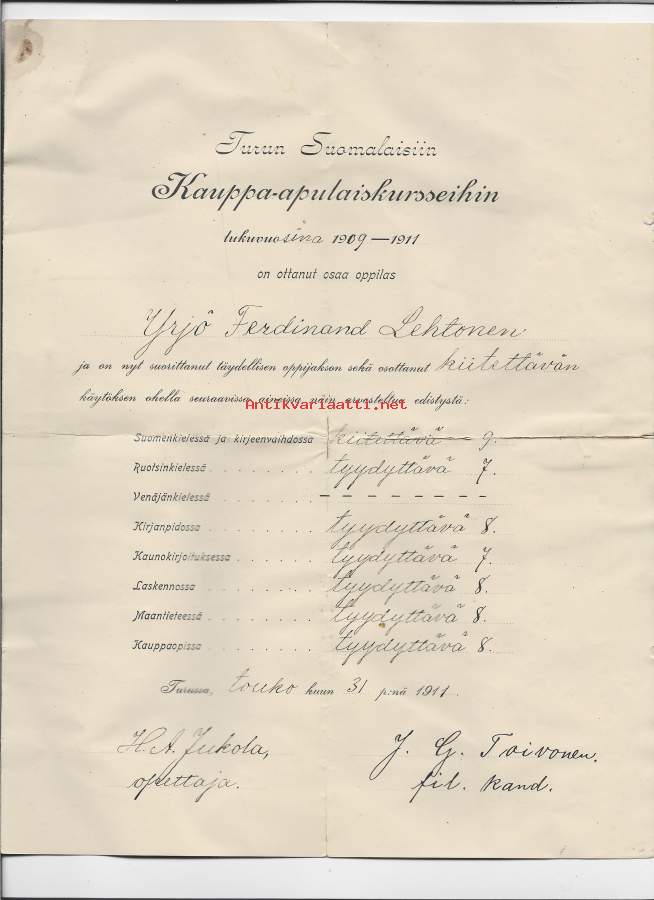 Turun Suomalaisiin
Kauppa-apulaiskursseihin
lukuvuosina 1909—1911
on ottanut osaa oppilas
Yrjö Ferdinand Lehtonen
ja on nyt suorittanut täydellisen oppijakson sekä osottanut kiitettävän
käytöksen ohella seuraavissa aineissa näin arvosteltua edistystä:
Antikvariaatti.net
Suomenkielessä ja kirjeenvaihdossa kiitettävä 9.
Ruotsinkielessä . . . . . . . tyydyttävä 7.
Venäjänkielessä . . . . . . . — — — — — — — — —
Kirjanpidossa . . . . . . . tyydyttävä 8.
Kaunokirjoituksessa . . . . . . tyydyttävä 7.
Laskennossa . . . . . . . tyydyttävä 8.
Maantieteessä . . . . . . . tyydyttävä 8.
Kauppaopissa . . . . . . . tyydyttävä 8.
Turussa, touko kuun 31 p:nä 1911.
H. A. Jukola, J. G. Toivonen.
opettaja. fil. kand.